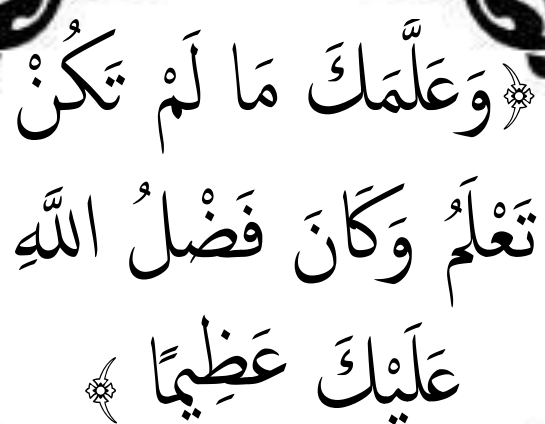 ﴿وَعَلَّمَكَ مَا لَمْ تَكُنْ
تَعْلَمُ وَكَانَ فَضْلُ اللَّهِ
عَلَيْكَ عَظِيمًا ﴾